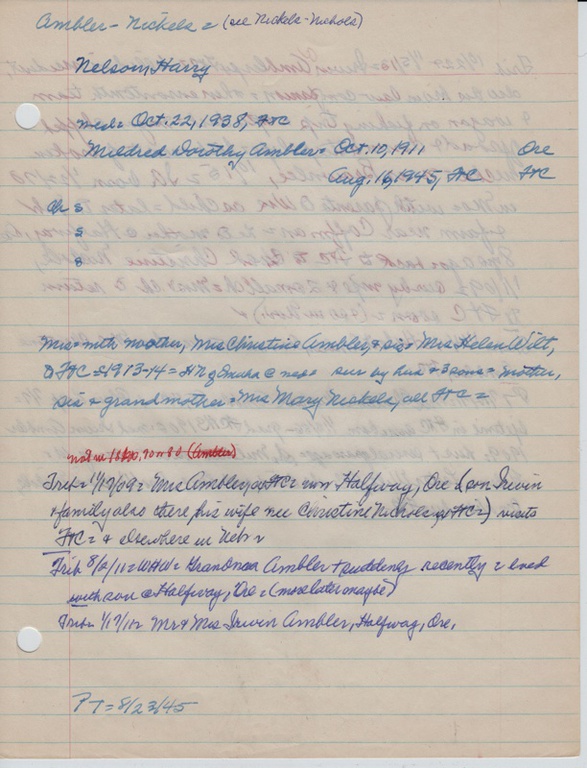 Ambler - Nickels = (see Nickels-Nichols)
Nelson, Harry
med = Oct. 22, 1938, FC
Mildred Dorothy Ambler = Oct. 10, 1911 Ore
Aug. 16, 1945, FC FC
Ch = s
s
s
Mis = with mother, Mrs Christine Ambler, & sis = Mrs Helen Wilt,
to FC = 1913-14 = sur by hus & 3 sons = mother,
sis & grandmother = Mrs Mary Nickels, all FC =
not in 1860, 70 or 80 (Ambler)
Trib = 1/12/09 = Mrs Ambler, FC = now Halfway, Ore (son Irwin
& family also there, his wife nee Christine Nichols FC =) visits
FC = & elsewhere in Nebr =
Trib 8/2/11 = Grandma Ambler recently = lived
with son @ Halfway, Ore = (more later maybe)
Trib = 1/17/12 = Mr & Mrs Irwin Ambler, Halfway, Ore.
PT = 8/23/45